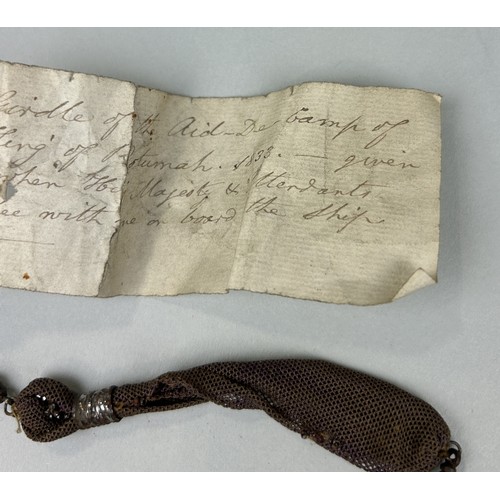 Girdle of the Aid-De Camp of
King of Rotumah. 1833. — given
when His Majesty & Attendants
with me on board the Ship